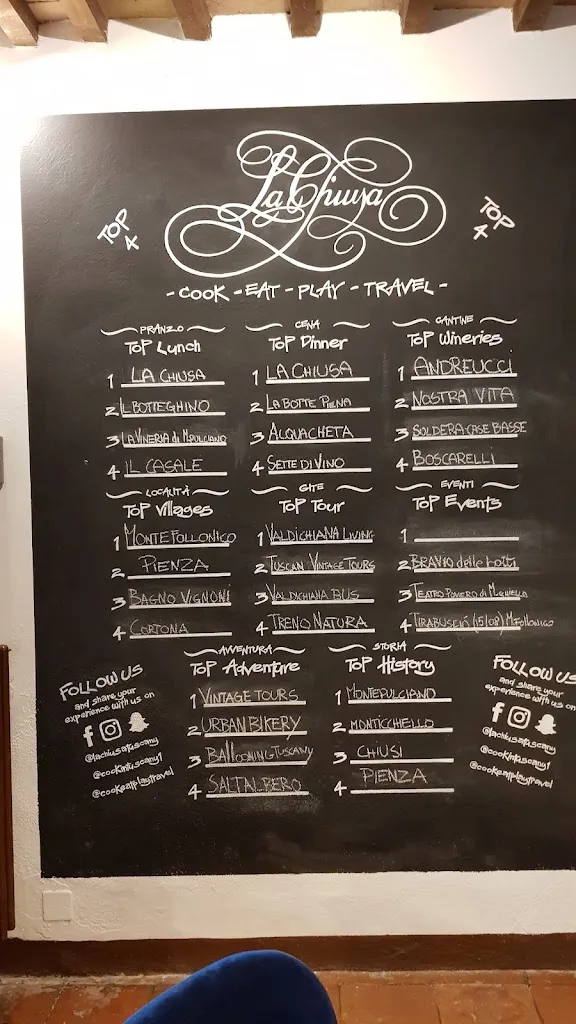 La Chiusa
TOP
4
TOP
4
- COOK - EAT - PLAY - TRAVEL -
PRANZO
Top Lunch
1 LA CHIUSA
2 IL BOTTEGHINO
3 LA VINERIA di M.PULCIANO
4 IL CASALE
CENA
Top Dinner
1 LA CHIUSA
2 LA BOTTE PIENA
3 ACQUACHETA
4 SETTE DI VINO
CANTINE
Top Wineries
1 ANDREUCCI
2 NOSTRA VITA
3 SOLDERA-CASE BASSE
4 BOSCARELLI
LOCALITÀ
Top Villages
1 MONTEFOLLONICO
2 PIENZA
3 BAGNO VIGNONI
4 CORTONA
GITE
Top Tour
1 VALDICHIANA LIVING
2 TUSCAN VINTAGE TOURS
3 VALDICHIANA BUS
4 TRENO NATURA
EVENTI
Top Events
1
2 BRAVIO delle botti
3 TEATRO POVERO di M.chiello
4 TIRABUSCIÓ (15/08) M.Follonico
AVVENTURA
Top Adventure
1 VINTAGE TOURS
2 URBAN BIKERY
3 BALLOONING TUSCANY
4 SALTALBERO
STORIA
Top History
1 MONTEPULCIANO
2 MONTICCHIELLO
3 CHIUSI
4 PIENZA
FOLLOW US
and share your
experience with us on
@lachiusatuscany
@cookintuscany1
@cookeatplaytravel
FOLLOW US
and share your
experience with us on
@lachiusatuscany
@cookintuscany1
@cookeatplaytravel